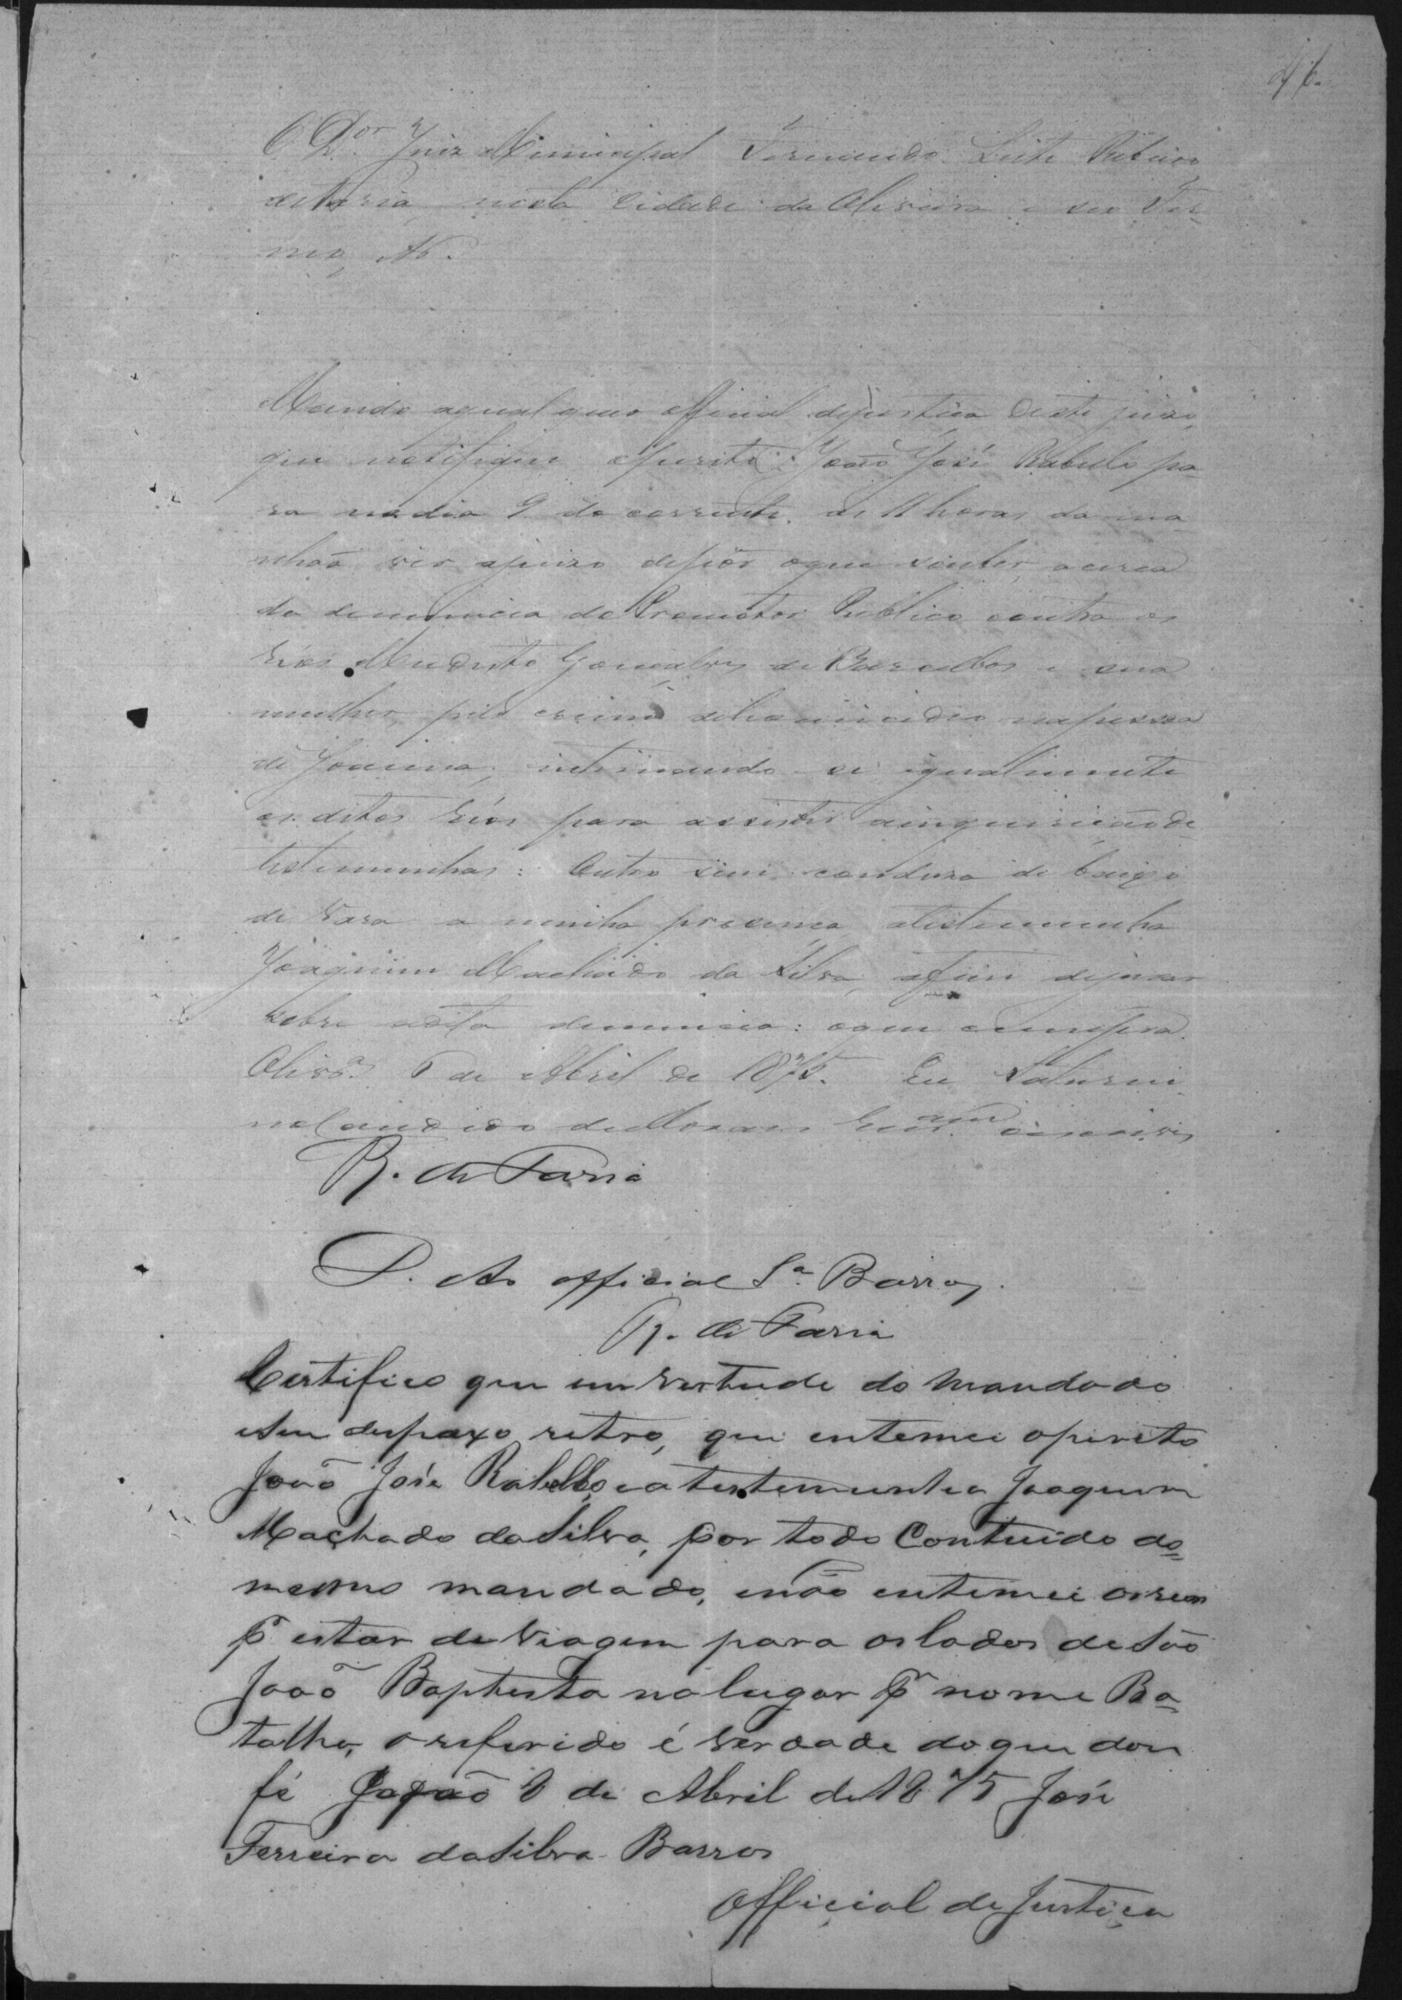 O D.or Juiz Municipal Fernando Leite Ribeiro
de Faria, nesta Cidade da Oliveira e seo Ter-
mo, &.
Mando aqualquer official dejustiça deste juizo,
que notifique operito João José Rabello pa-
ra nodia 9 do corrente as 11 horas da ma
nhaã vir ajuizo depôr oque souber acerca
da denuncia do Promotor Publico contra os
réos Modesto Gonçalves de Barcellos e sua
mulher, pelo crime dehomicidio napessoa
de Joanna, intimando se igualmente
os ditos réos para assistir ainquirição de
testemunhas: Outro sim conduza de baixo
de vara a minha presença atestemunha
Joaquim Machado da Silva, afim dejurar
sobre adita denuncia: oque cumpra.
Olivr.a 6 de Abril de 1875. Eu Saturni
no Candido de Moraes
R. de Faria
D. Ao official S.a Barros.
R. de Faria
Certifico que em vertude do Mandado
eseu despaxo retro, que entemei operito
João José Rabello, eatestemunha Joaquim
Machado da Silva, por todo Contuido do-
mesmo mandado, enão entemei os reos
p.r estar de viagem para oslados de São
João Baptista no lugar p.r nome Ba-
talha, o referido é verdade doque dou
fé Japão 8 de Abril de 1875 José
Ferreira da Silva Barros
Official de Justiça